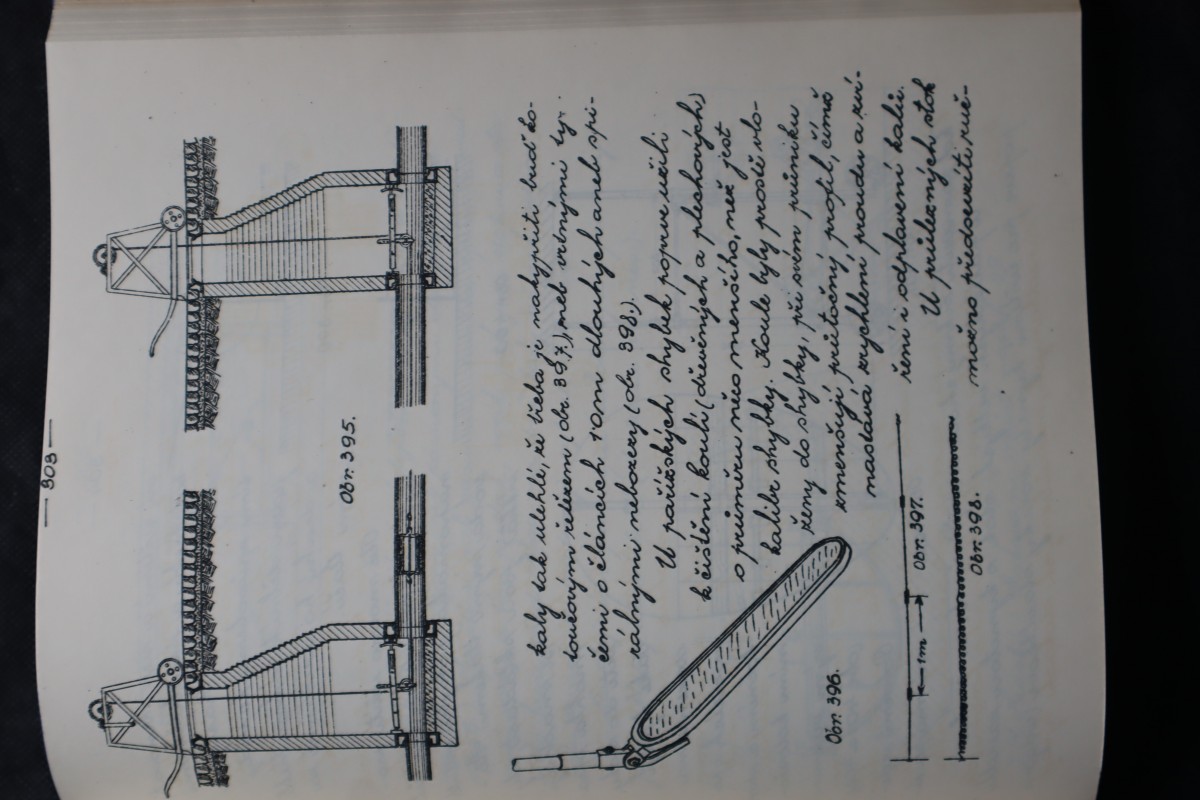 — 303 —
Obr. 395.
kaly tak ulehlé, že třeba je nakypřiti buď ko-
toučovým řetězem (obr. 397.) neb vrtnými ty-
čemi o článcích 1·0m dlouhých aneb spi-
rálnými nebozezy (obr. 398.).
U pařížských shybek poprve užili
k čištění koulí (dřevěných a plechových)
o průměru něco menšího, než jest
kalibr shybky. Koule byly prostě vlo-
ženy do shybky, při svém průniku
zmenšují průtočný profil, čímž
nastává zrychlení proudu a zví-
ření i odplavení kalů.
U průlezných stok
možno předsevzíti ruč-
Obr. 396.
1m
Obr. 397.
Obr. 398.